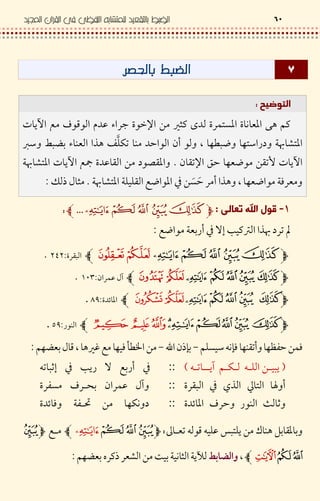 ٦٠ الضبط بالتقعيد للمتشابه اللفظي في القرآن المجيد
٧ الضبط بالحصر
التوضيح :
كم هي المعاناة المستمرة لدى كثير من الإخوة جراء عدم الوقوف مع الآيات
المتشابهة ودراستها وضبطها ، ولو أن الواحد منا تكلَّف هذا العناء بضبط وسبر
الآيات لأتقن موضعها حق الإتقان . والمقصود من القاعدة جمع الآيات المتشابهة
ومعرفة مواضعها ، وهذا أمر حَسَن في المواضع القليلة المتشابهة . مثال ذلك :
١- قول الله تعالى : ﴿ كَذَٰلِكَ يُبَيِّنُ ٱللَّهُ لَكُمْ ءَايَـٰتِهِۦ ... ﴾ :
لم ترد بهذا التركيب إلا في أربعة مواضع :
﴿ كَذَٰلِكَ يُبَيِّنُ ٱللَّهُ لَكُمْ ءَايَـٰتِهِۦ لَعَلَّكُمْ تَعْقِلُونَ ﴾ البقرة: ٢٤٢ .
﴿ كَذَٰلِكَ يُبَيِّنُ ٱللَّهُ لَكُمْ ءَايَـٰتِهِۦ لَعَلَّكُمْ تَهْتَدُونَ ﴾ آل عمران: ١٠٣ .
﴿ كَذَٰلِكَ يُبَيِّنُ ٱللَّهُ لَكُمْ ءَايَـٰتِهِۦ لَعَلَّكُمْ تَشْكُرُونَ ﴾ المائدة: ٨٩ .
﴿ كَذَٰلِكَ يُبَيِّنُ ٱللَّهُ لَكُمْ ءَايَـٰتِهِۦ وَٱللَّهُ عَلِيمٌ حَكِيمٌ ﴾ النور: ٥٩ .
فمن حفظها وأتقنها فإنه سيسلم – بإذن الله – من الخطأ فيها مع غيرها ، قال بعضهم :
( يبيـن اللـه لـكـم آيـاتـه ) :: في أربع لا ريب في إثباته
أولها التالي الذي في البقرة :: وآل عمران بحـرف مسفرة
وثالث النور وحرف المائدة :: دونكها من تحـفة وفائدة
وبالمقابل هناك من يلتبس عليه قوله تعـالى: ﴿ يُبَيِّنُ ٱللَّهُ لَكُمْ ءَايَـٰتِهِۦ ﴾ مـع ﴿ يُبَيِّنُ
ٱللَّهُ لَكُمُ ٱلْءَايَـٰتِ ﴾ ، والضابط للآية الثانية بيت من الشعر ذكره بعضهم :